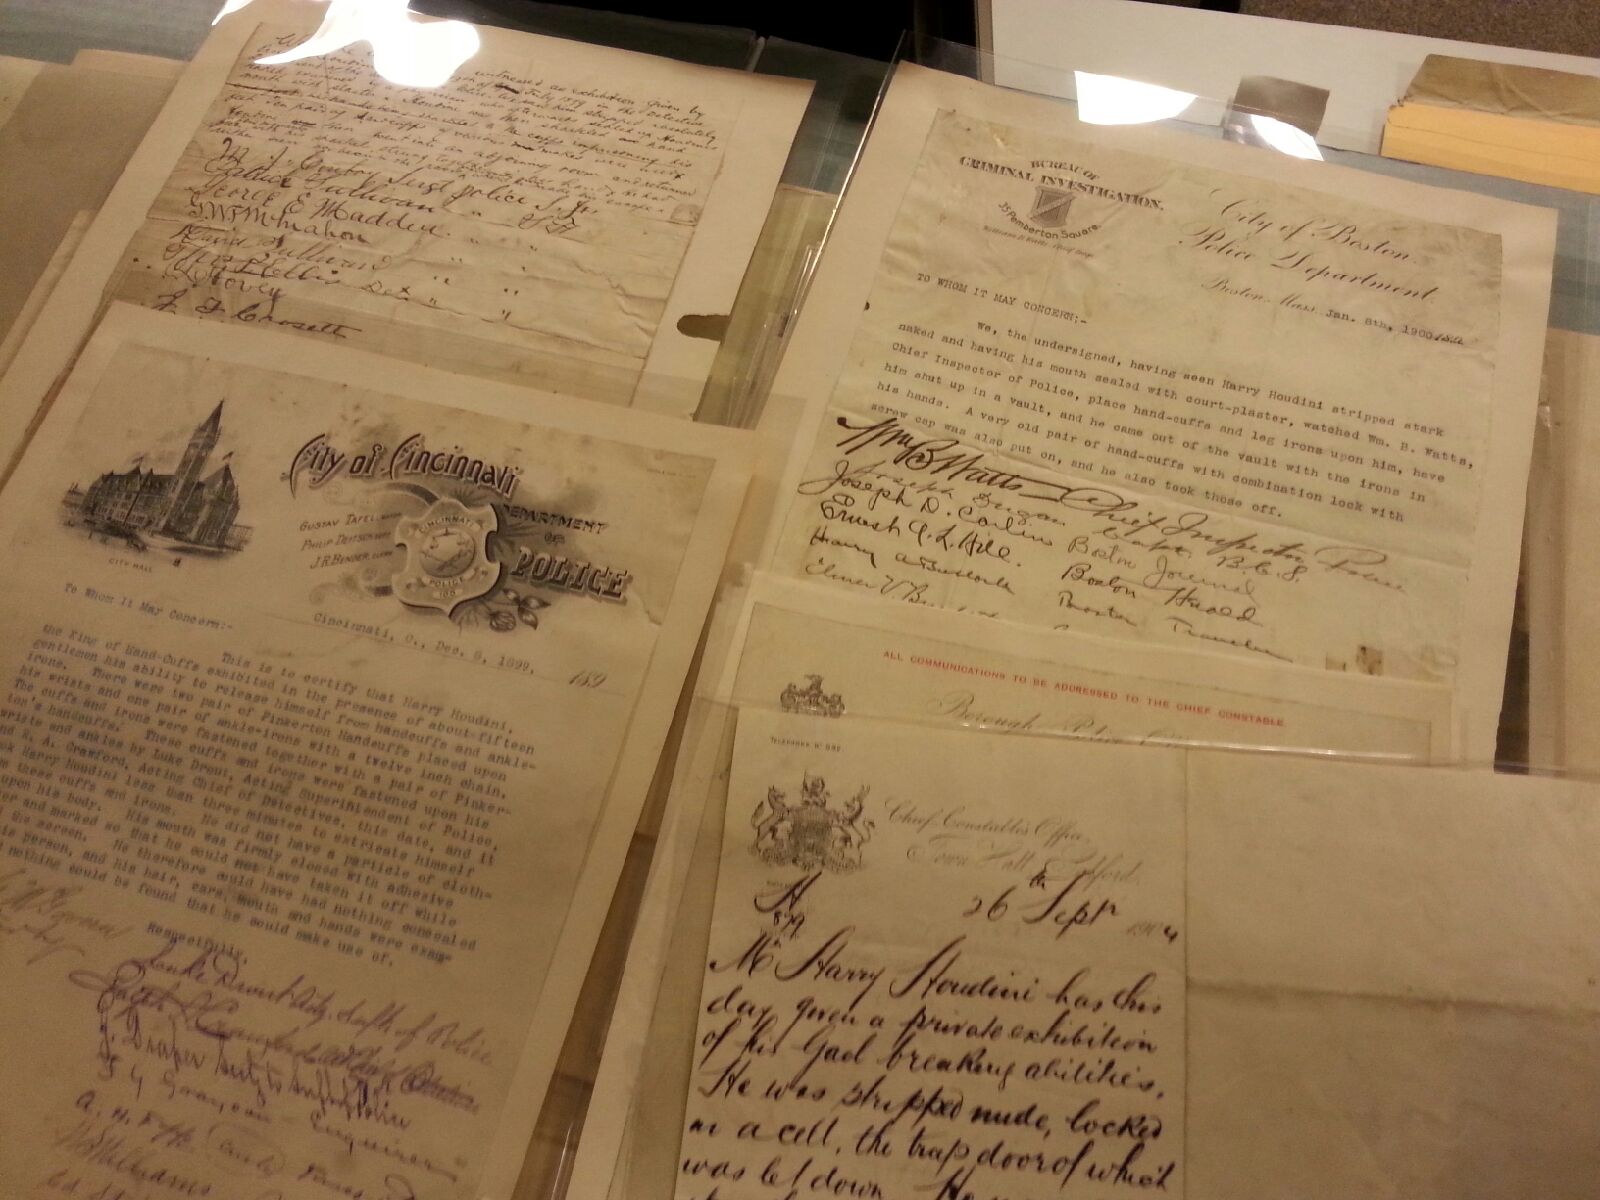 witnessed an exhibition given by
July 1899 in the Detective
stripped absolutely
naked, examined by a physician who afterward sealed up Houdinis
mouth with plaster. Houdini was then shackled hand
feet ten pairs handcuffs of various makes were used
then went into an adjoining room and returned
George E Madden " "
David Sullivan " "
Hovey "
BUREAU OF
CRIMINAL INVESTIGATION.
35 Pemberton Square.
City of Boston.
Police Department.
Boston, Mass. Jan. 8th, 1900 189
TO WHOM IT MAY CONCERN:-
We, the undersigned, having seen Harry Houdini stripped stark
naked and having his mouth sealed with court-plaster, watched Wm. B. Watts,
Chief Inspector of Police, place hand-cuffs and leg irons upon him, have
him shut up in a vault, and he came out of the vault with the irons in
his hands. A very old pair of hand-cuffs with combination lock with
screw cap was also put on, and he also took those off.
Wm B Watts Chief Inspector Police
Joseph Dugan Capt. B.C.I.
Joseph D. Boston Journal
Boston Herald
Harry Boston Traveler
City of Cincinnati
DEPARTMENT
OF
POLICE
GUSTAV TAFEL, MAYOR
PHILIP DEITSCH, SUPT.
J.R. BENDER, CLERK
CINCINNATI
POLICE
CITY HALL
Cincinnati, O., Dec. 8, 1899. 189
To Whom It May Concern:-
This is to certify that Harry Houdini,
the King of Hand-Cuffs exhibited in the presence of about fifteen
gentlemen his ability to release himself from handcuffs and ankle-
irons. There were two pair of Pinkerton Handcuffs placed upon
his wrists and one pair of ankle-irons with a twelve inch chain.
The cuffs and irons were fastened together with a pair of Pinker-
ton's handcuffs. These cuffs and irons were fastened upon his
wrists and ankles by Luke Drout, Acting Superintendent of Police,
and R. A. Crawford, Acting Chief of Detectives, this date, and it
took Harry Houdini less than three minutes to extricate himself
from these cuffs and irons. He did not have a particle of cloth-
upon his body. His mouth was firmly closed with adhesive
and marked so that he could not have taken it off while
the screen. He therefore could have had nothing concealed
his person, and his hair, ears, mouth and hands were exam-
nothing could be found that he could make use of.
Respectfully,
Luke Drout Actg. Supt. of Police
Crawford Act Chief Detectives
J. Draper Secty to Supt Police
Enquirer
Williams
ALL COMMUNICATIONS TO BE ADDRESSED TO THE CHIEF CONSTABLE.
Borough Police
TELEPHONE No 592
Chief Constable's Office,
Town Hall, Salford.
H
879
26th Septr 1904
Mr Harry Houdini has this
day given a private exhibition
of his Gaol breaking abilities.
He was stripped nude, locked
in a cell, the trap door of which
was let down